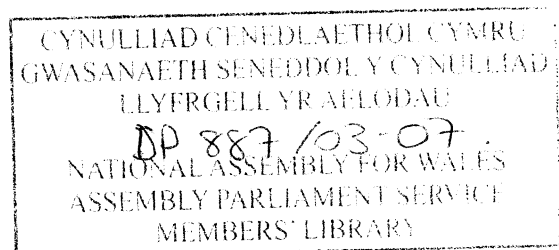 CYNULLIAD CENEDLAETHOL CYMRU
GWASANAETH SENEDDOL Y CYNULLIAD
LLYFRGELL YR AELODAU
DP 887/03-07.
NATIONAL ASSEMBLY FOR WALES
ASSEMBLY PARLIAMENT SERVICE
MEMBERS' LIBRARY